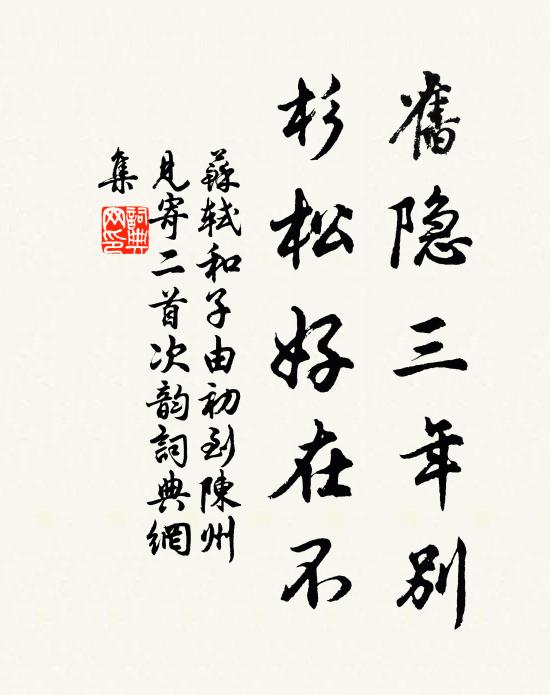 舊隐三年别
杉松好在不
蘇軾和子由初到陳州
見寄二首次韵詞典網
集
詞典
网印